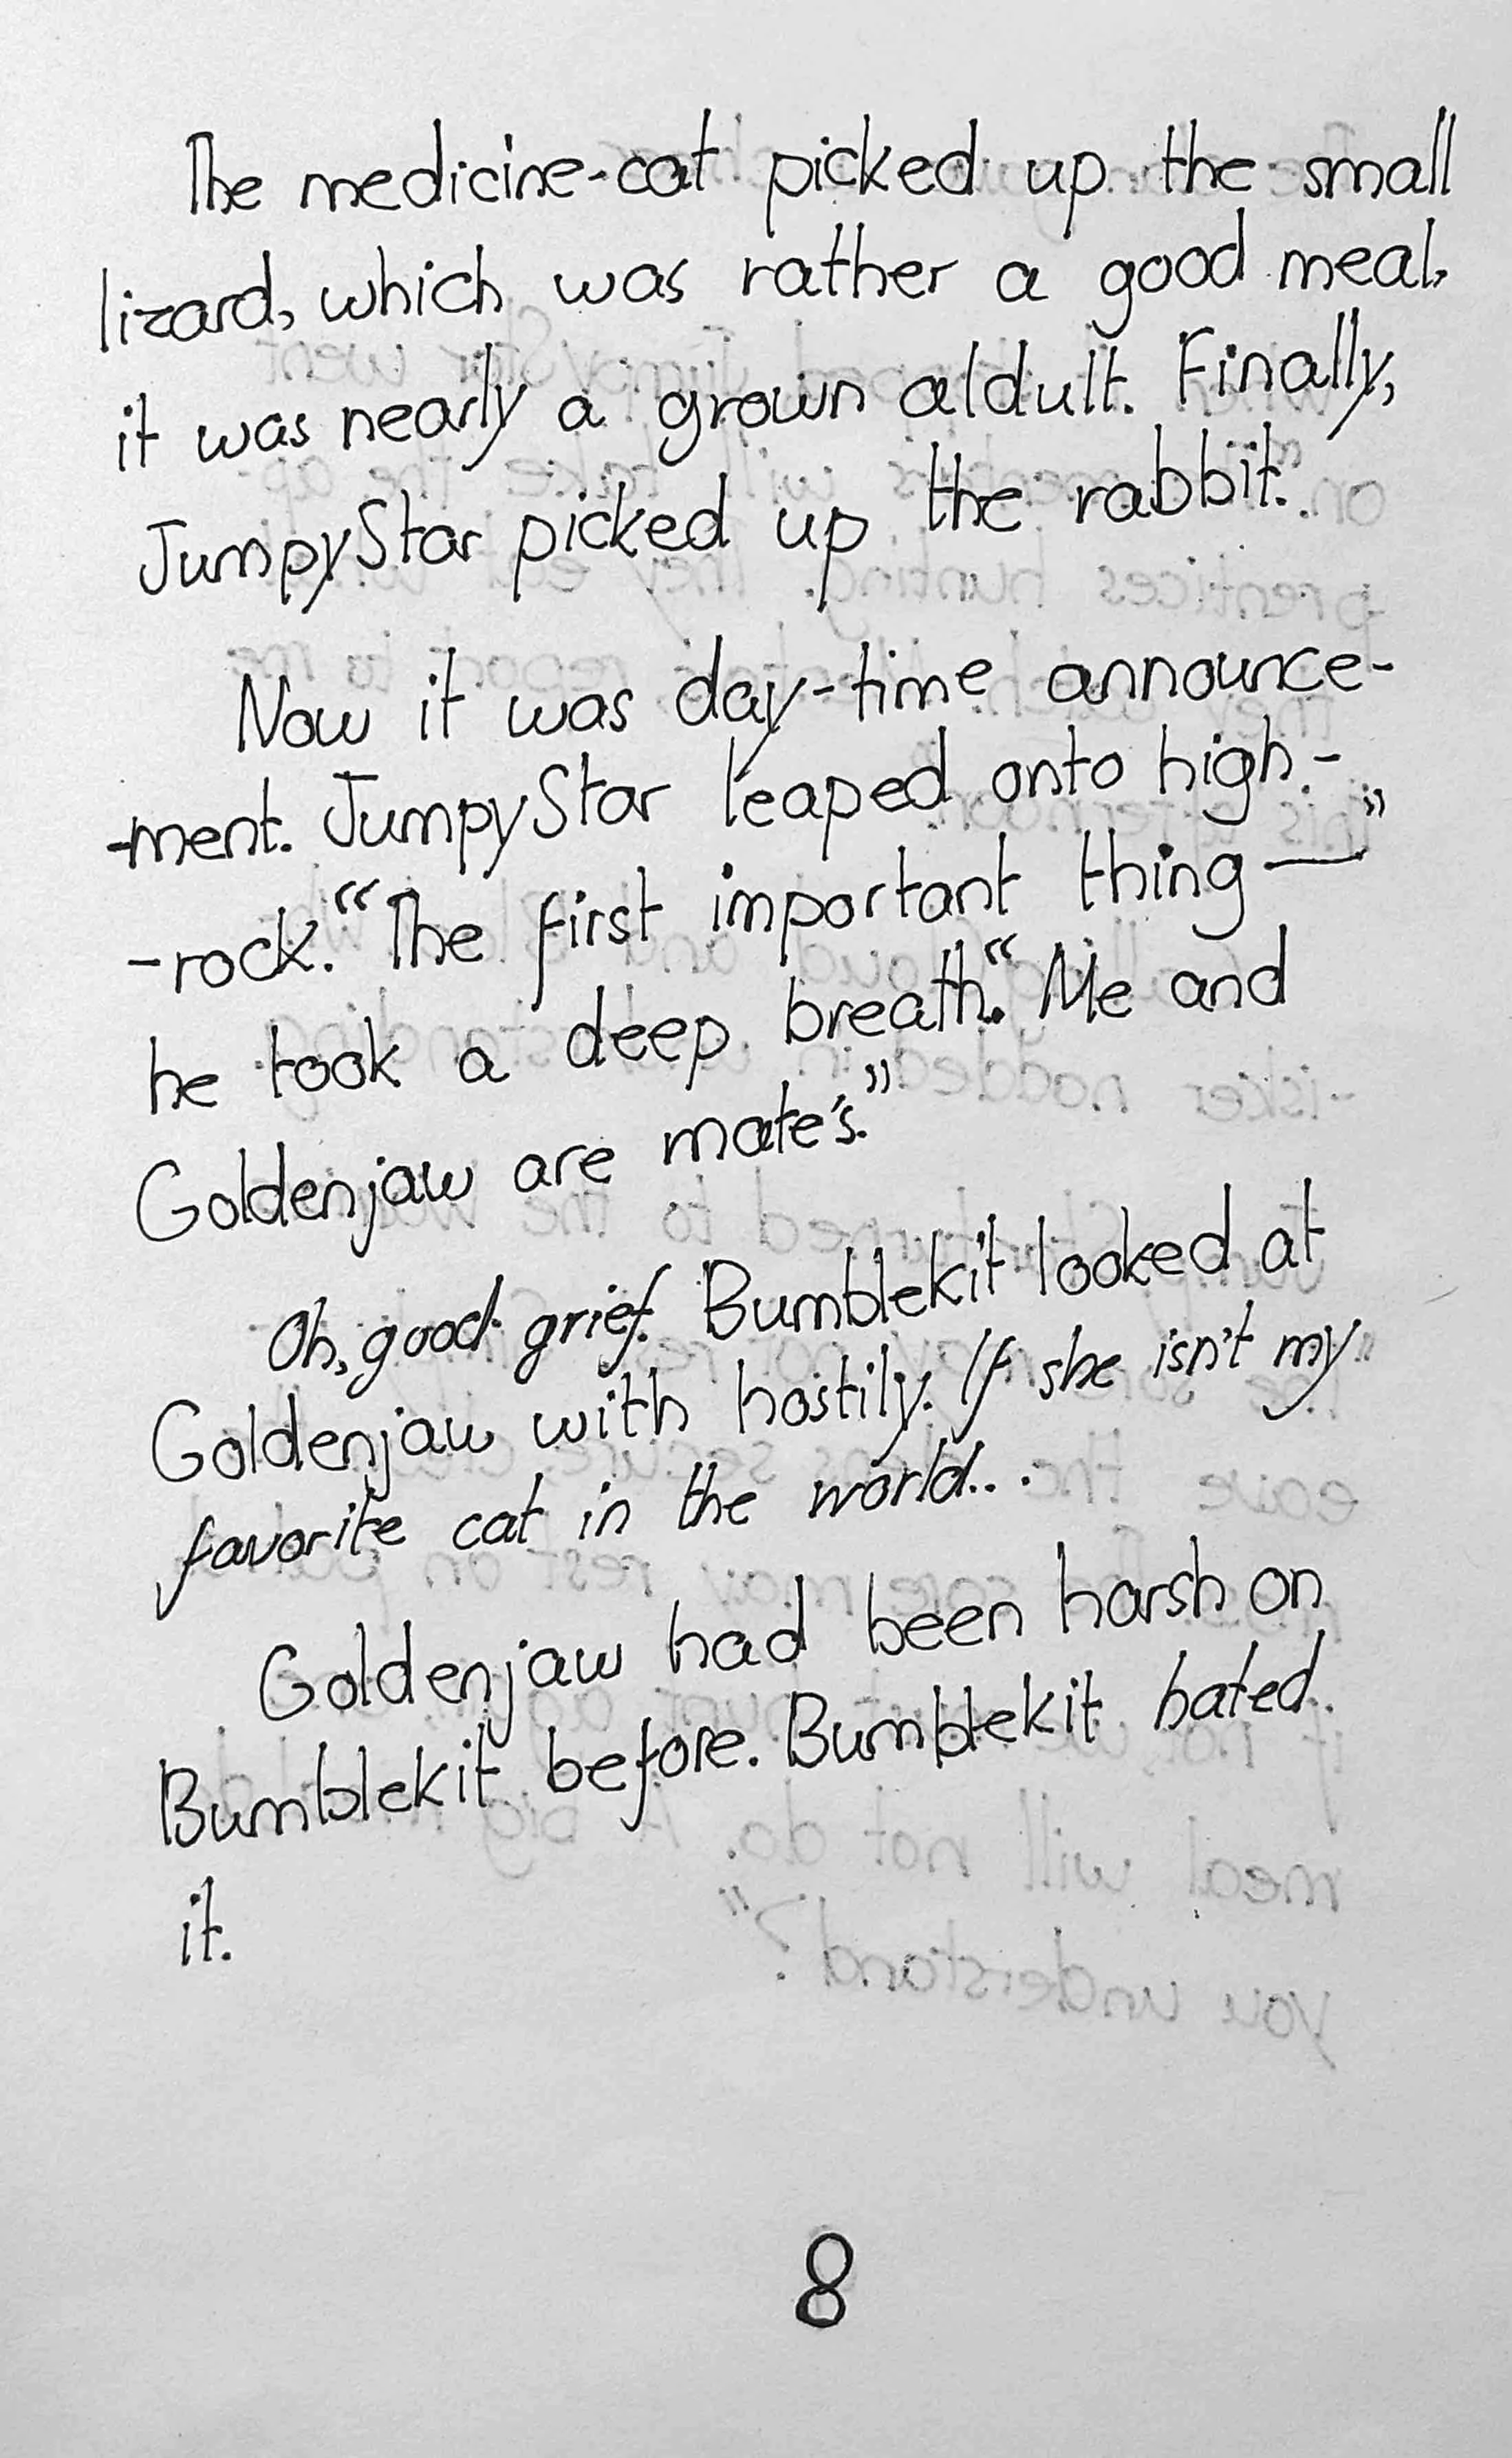 The medicine-cat picked up the small
lizard, which was rather a good meal,
it was nearly a grown aldult. Finally,
JumpyStar picked up the rabbit.
Now it was day-time announce-
-ment. JumpyStar leaped onto high-
-rock. “The first important thing—”
he took a deep breath. “Me and
Goldenjaw are mate's.”
Oh, good grief. Bumblekit looked at
Goldenjaw with hostily. If she isn't my
favorite cat in the world...
Goldenjaw had been harsh on
Bumblekit before. Bumblekit hated
it.
8